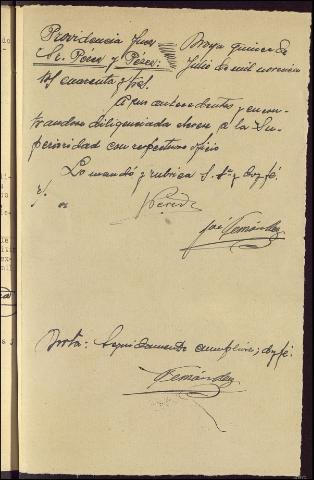 Providencia Juez
Sr. Pérez y Pérez:
Noya quince de
Julio de mil novecien
tos cuarenta y tres.
A sus antecedentes y encon
trandose diligenciada elevese a la Su
perioridad con respetuoso oficio
Lo mandó y rubrica S. Sª. y doy fé
Pérez
José Fernández
Nota: Seguidamente cumplido; doy fé.
Fernández